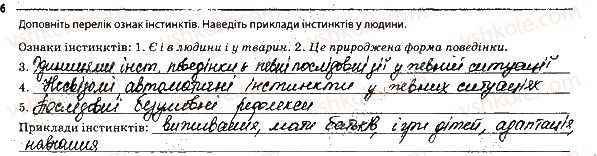 6
Доповніть перелік ознак інстинктів. Наведіть приклади інстинктів у людини.
Ознаки інстинктів: 1. Є і в людини і у тварин. 2. Це природжена форма поведінки.
3. Одиницями інст. поведінки є певні послідовні дії у певній ситуації
4. Несвідомі автоматичні інстинкти у певних ситуаціях
5. Послідовні безумовні рефлекси
Приклади інстинктів: виживання, мати батьків, ігри дітей, адаптація,
навчання